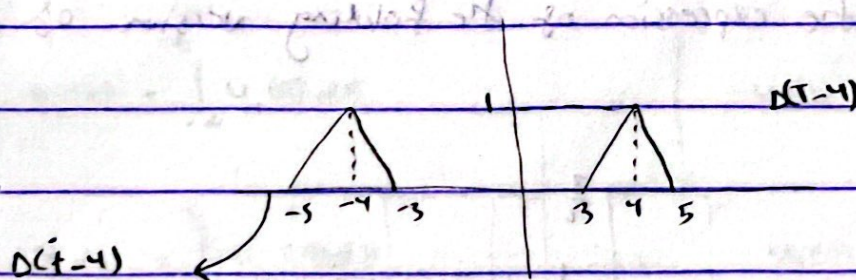 1 Δ(T-4)
-5 -4 -3 3 4 5
Δ(t-4)